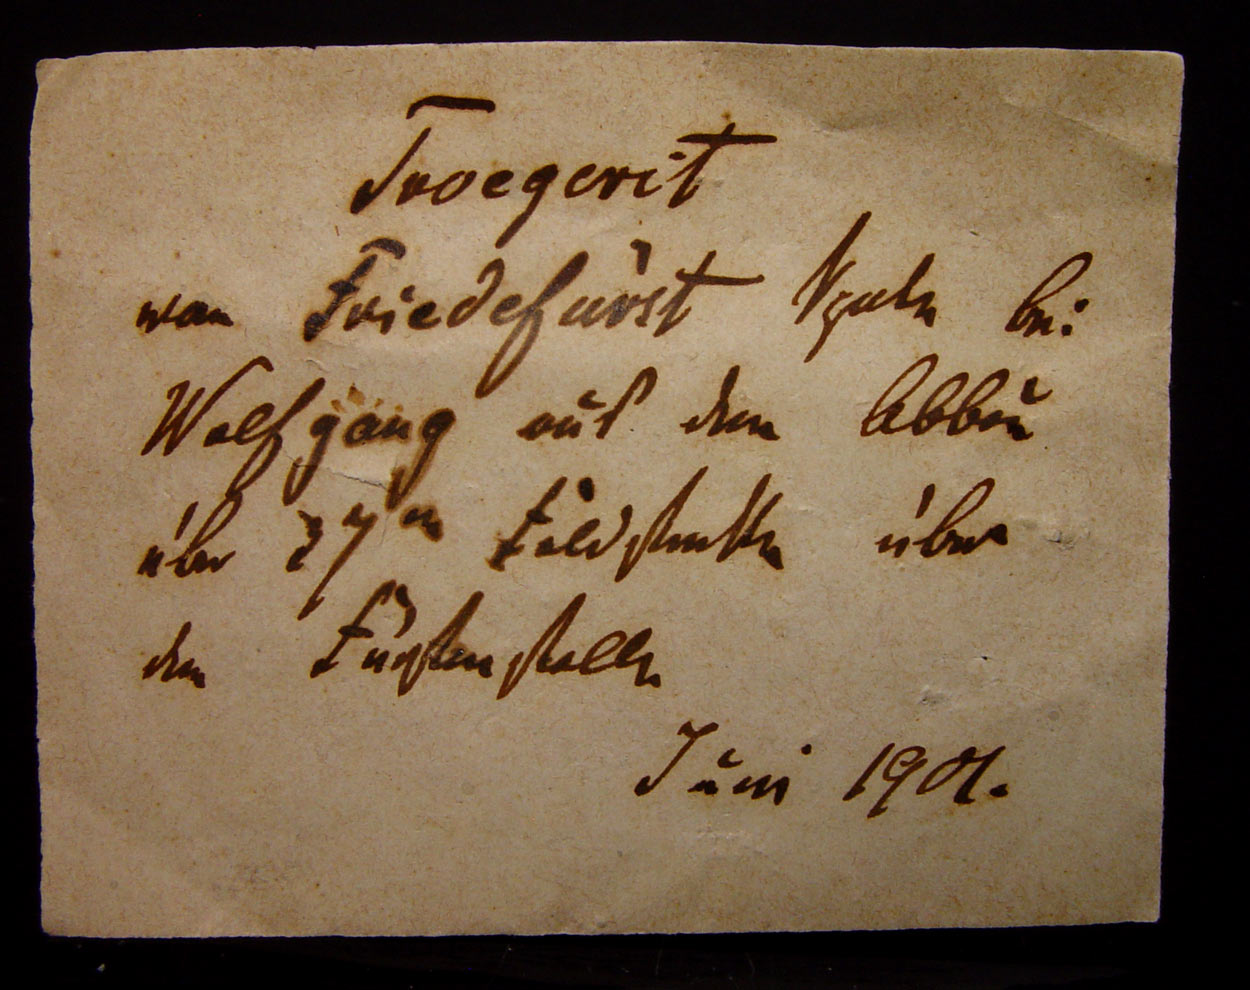 Troegerit
von Friedefürst Spath bei
Wolfgang aus dem Abbau
über 27m Feldstrecke über
dem Fürstenstolln
Juni 1901.